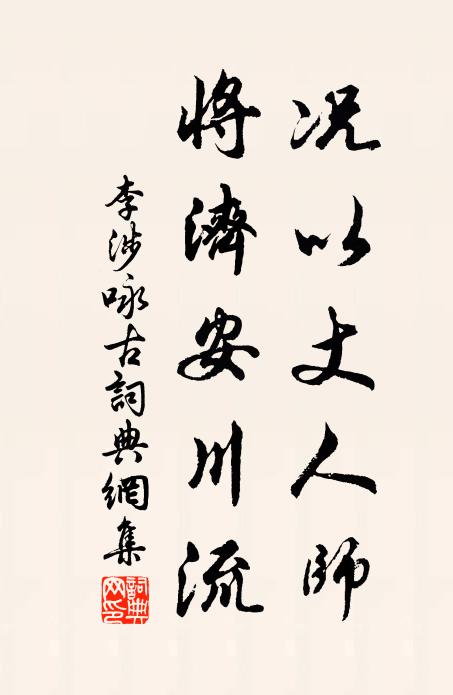 况以丈人師
將濟安川流
李涉咏古詞典網集
詞典網印